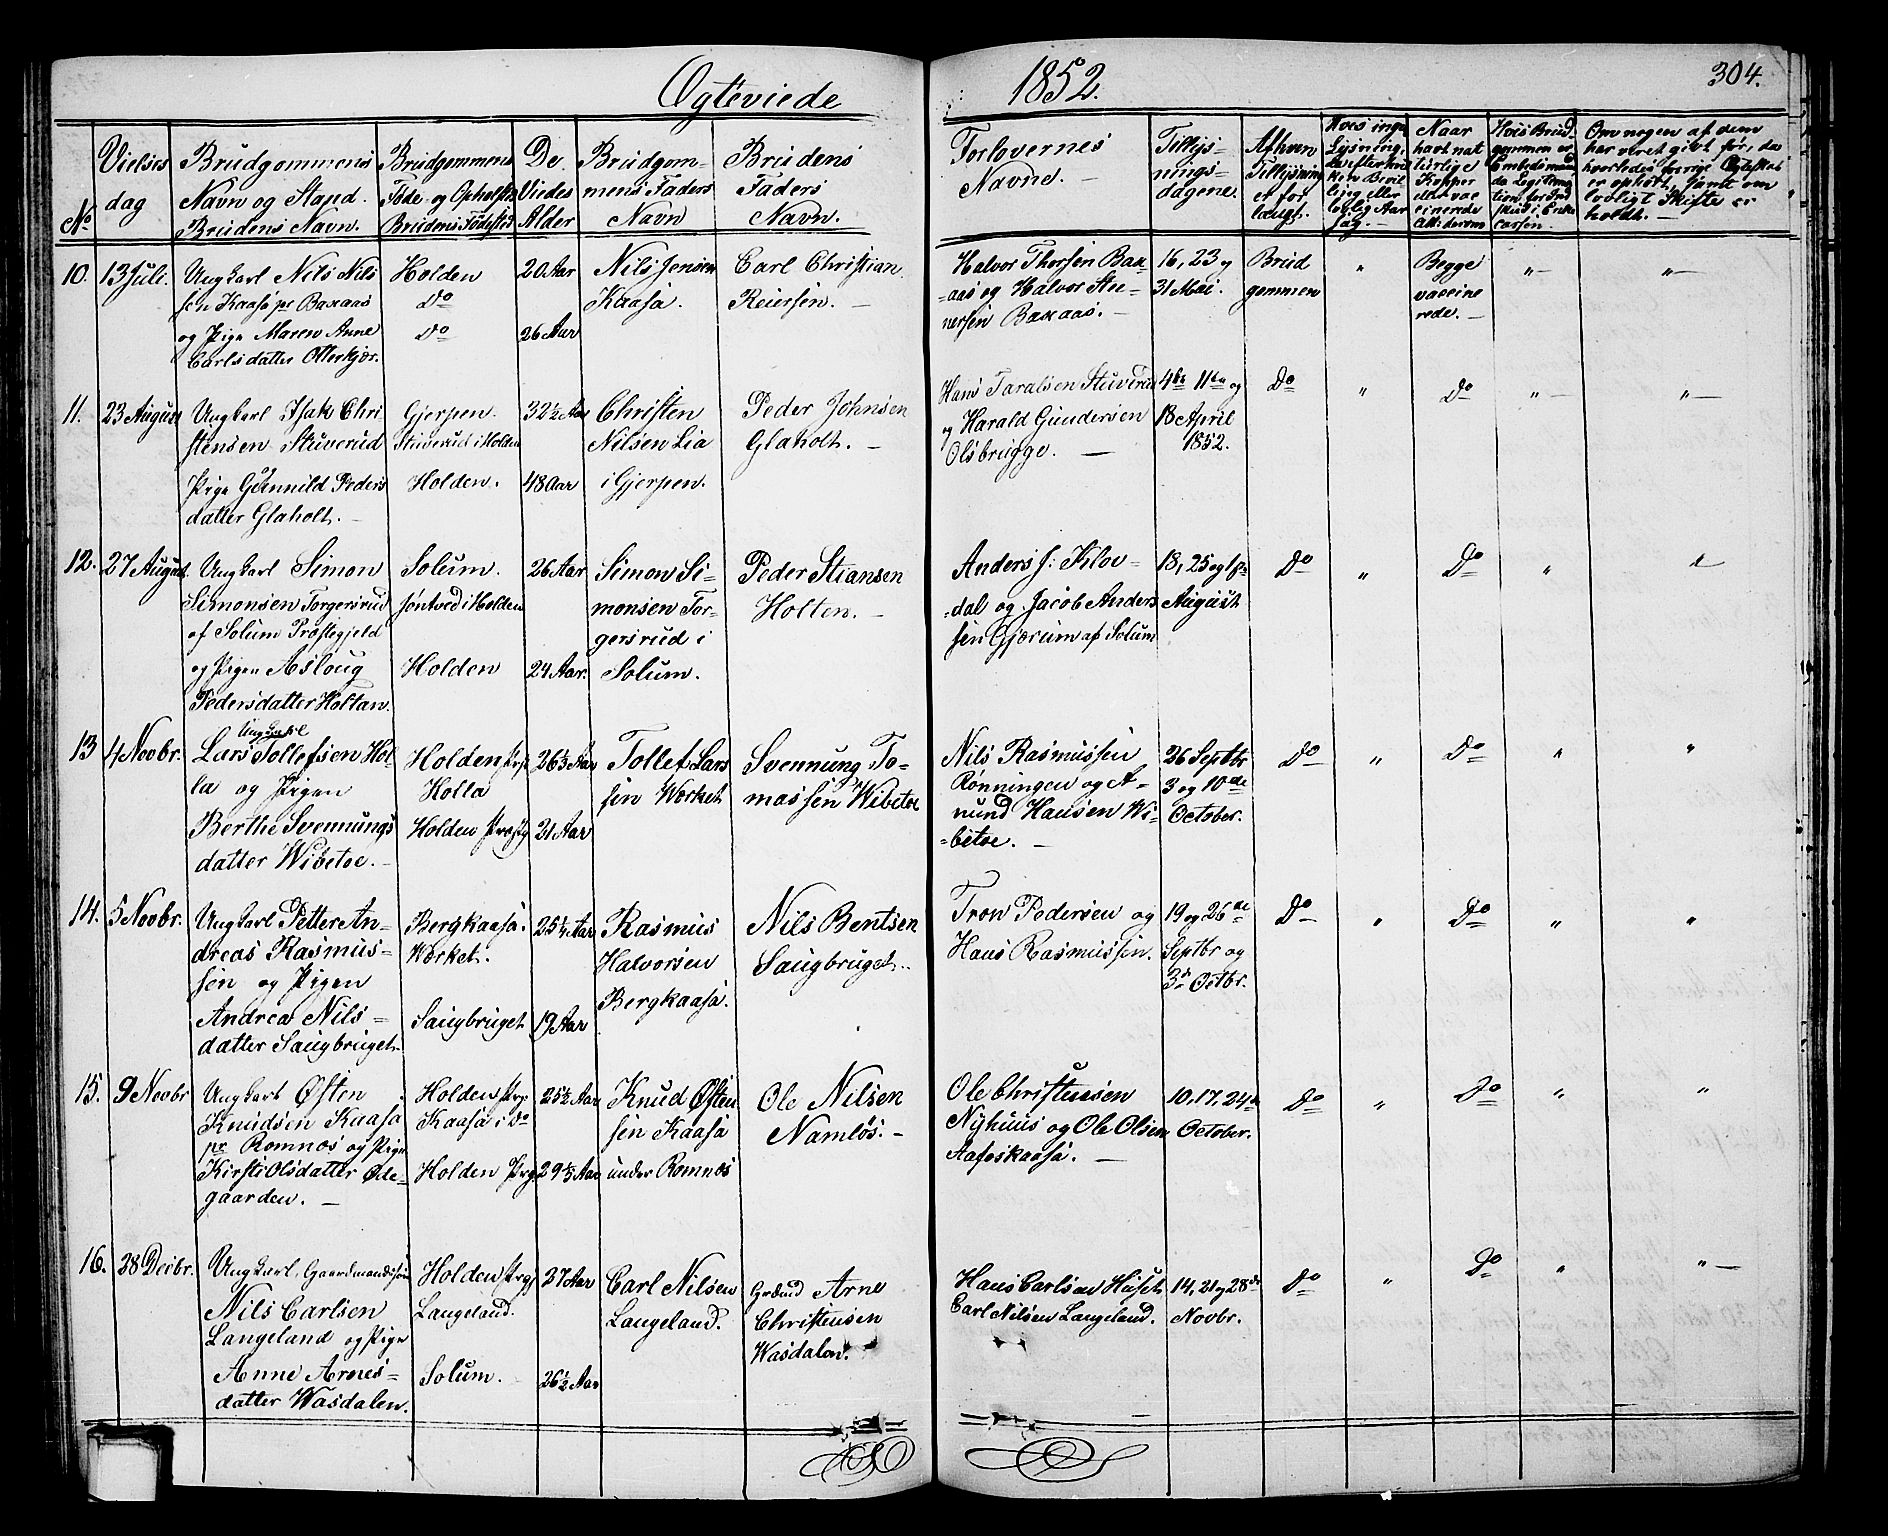 Ægteviede 1852. 304.
No
Vielses dag
Brudgommens Navn og Stand. Brudens Navn.
Brudgommens Føde- og Opholdst. Brudens Fødested
De Viedes Alder
Brudgommens Faders Navn
Brudens Faders Navn.
Forlovernes Navne. —
Tillysningsdagene.
Af hvem Tillysning er forlangt.
Hvis ingen Lysning,
Naar havt naturlige Kopper eller vaccinerede
Hvis Brudgommen er Embedsmand, da Legitimation for Indskud i Enkecassen.
Om nogen af dem har været givt før, da hvorledes forrige Ægteskab er ophævt, samt om lovligt Skifte er holdt. —
10. 13 Juli.
Ungkarl Nils Nils
sen Kaasa pr Baxaas
og Pige Maren Anne
Carlsdatter Otterkjær.
Holden
Do
Do
20 Aar
26 Aar
Nils Jensen
Kaasa.
Carl Christian
Reiersen. —
Halvor Thorsen Bax-
aas og Halvor Ste-
nersen Baxaas. —
16, 23 og
31 Mai.
Brud
gommen
"
Begge
vaccine
rede. —
" —
" —
11. 23 August
Ungkarl Isak Chri
stensen Stuverud
Pige Gunnild Peders
datter Glaholt. —
Gjerpen.
Stuverud i Holden
Holden.
32½ Aar
48 Aar
Christen
Nilsen Lia
i Gjerpen.
Peder Johnsen
Glaholt. —
Hans Taralsen Stuverud
og Harald Gundersen
Olsbrygge. —
4de 11te og
18 April
1852.
Do
"
Do
" —
" —
12. 27 August
Ungkarl Simon
Simonsen Torgersrud
af Solum Præstegjeld
og Pigen Asloug
Pedersdatter Holtan.
Solum.
Søntved i Holden
Holden
26 Aar
24 Aar.
Simon Si-
monsen Tor-
gersrud i
Solum.
Peder Stiansen
Holten. —
Anders J: Klov-
dal og Jacob Anders
sen Gjærum af Solum
18, 25 og 1ste
August
Do
"
Do
"
13 4 Novbr.
Ungkarl
Lars Tollefsen Hol-
la og Pigen
Berthe Svennungs
datter Wibetoe. —
Holden Prg
Holla
Holden Præstg
26½ Aar
21 Aar
Tollef Lars
sen Wærket
Svennung To-
massen Wibetoe
Nils Rasmussen
Rønningen og A-
mund Hansen Wi-
betoe. —
26 Septbr
3 og 10de
October.
Do
"
Do
"
"
14. 5 Novbr.
Ungkarl Petter An-
dreas Rasmus-
sen og Pigen
Andrea Nils-
datter Saugbruget.
Bergkaasa.
Wærket.
Saugbruget
25¼ Aar
19 Aar
Rasmus
Halvorsen
Bergkaasa.
Nils Bentsen
Saugbruget.
Tron Pedersen og
Hans Rasmussen.
19 og 26de
Septbr og
3de Octbr.
Do
"
Do
"
"
15. 9 Novbr
Ungkarl Østen
Knudsen Kaasa
pr Romnæs og Pige
Kirsti Olsdatter Øde-
gaarden. —
Holden Prg
Kaasa i Do
Holden Prg
25½ Aar
Knud Østen
sen Kaasa
under Romnæs
Ole Nilsen
Namløs. —
Ole Christensen
Nyhuus og Ole Olsen
Aafoskaasa. —
10, 17, 24de
October.
Do
"
Do
"
"
16. 28 Decbr.
Ungkarl, Gaardmandssøn
Nils Carlsen
Langeland og Pige
Anne Arnes-
datter Wasdalen.
Holden Prgj
Langeland.
Solum.
27 Aar
26½ Aar
Carl Nilsen
Langeland.
Grænd Arne
Christensen
Wasdalen.
Hans Carlsen Huset
Carl Nilsen Langeland.
14, 21 og 28de
Novbr.
Do
"
Do
"
" —